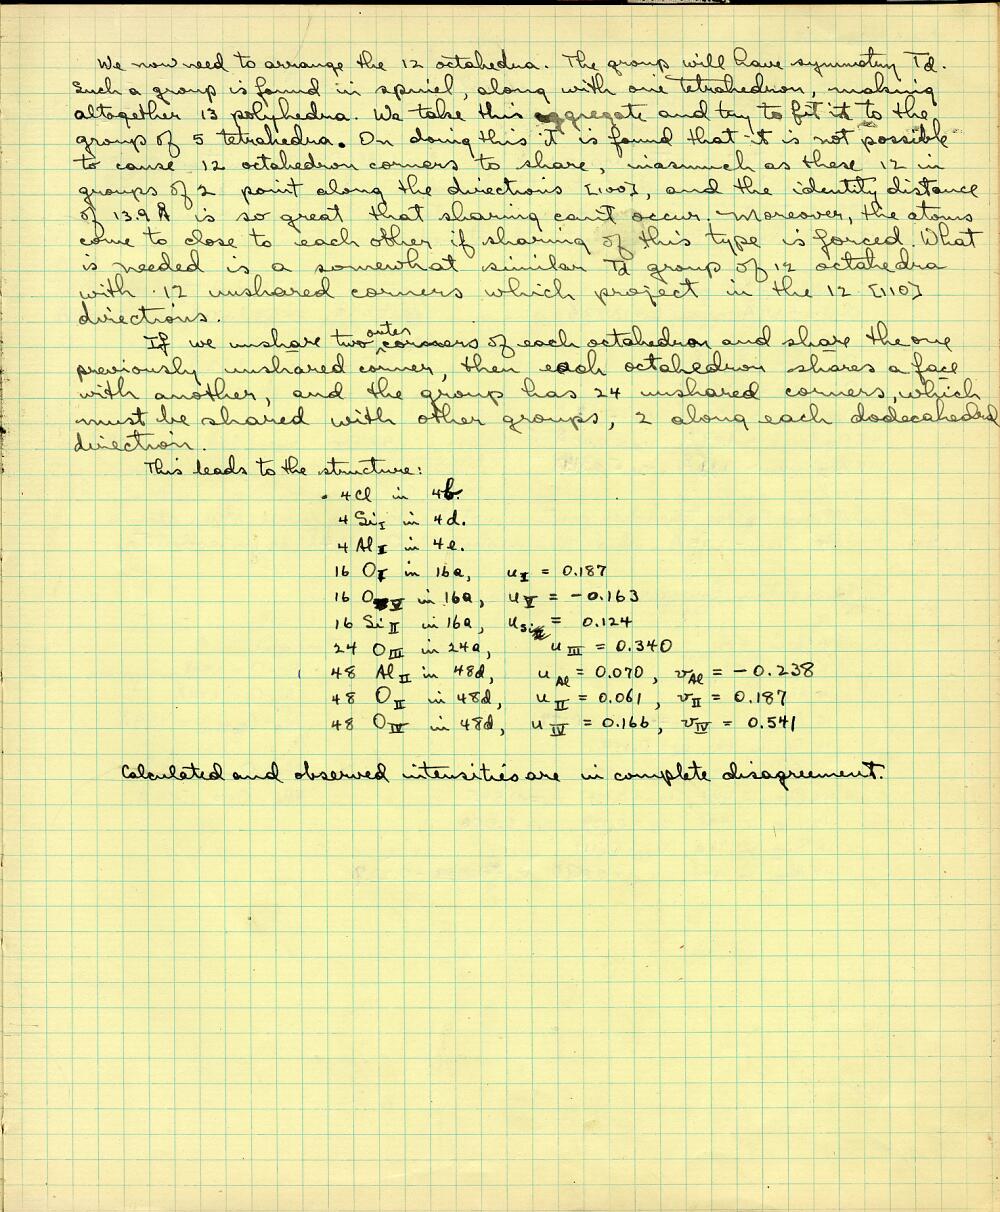 We now need to arrange the 12 octahedra. The group will have symmetry Td.
Such a group is found in spinel, along with one tetrahedron, making
altogether 13 polyhedra. We take this aggregate and try to fit it to the
group of 5 tetrahedra. On doing this it is found that it is not possible
to cause 12 octahedron corners to share, inasmuch as these 12 in
groups of 2 point along the directions [100], and the identity distance
of 13.9 Å is so great that sharing can't occur. Moreover, the atoms
come to close to each other if sharing of this type is forced. What
is needed is a somewhat similar Td group of 12 octahedra
with 12 unshared corners which project in the 12 [110]
directions.
If we unshare two outer corners of each octahedron and share the one
previously unshared corner, then each octahedron shares a face
with another, and the group has 24 unshared corners, which
must be shared with other groups, 2 along each dodecahedral
direction.
This leads to the structure:
4Cl in 4b.
4 Si_I in 4d.
4 Al_I in 4e.
16 O_I in 16a, u_I = 0.187
16 O_V in 16a, u_V = -0.163
16 Si_II in 16a, u_Si = 0.124
24 O_III in 24a, u_III = 0.340
48 Al_II in 48d, u_Al = 0.070, v_Al = -0.238
48 O_II in 48d, u_II = 0.061, v_II = 0.187
48 O_IV in 48d, u_IV = 0.166, v_IV = 0.541
Calculated and observed intensities are in complete disagreement.